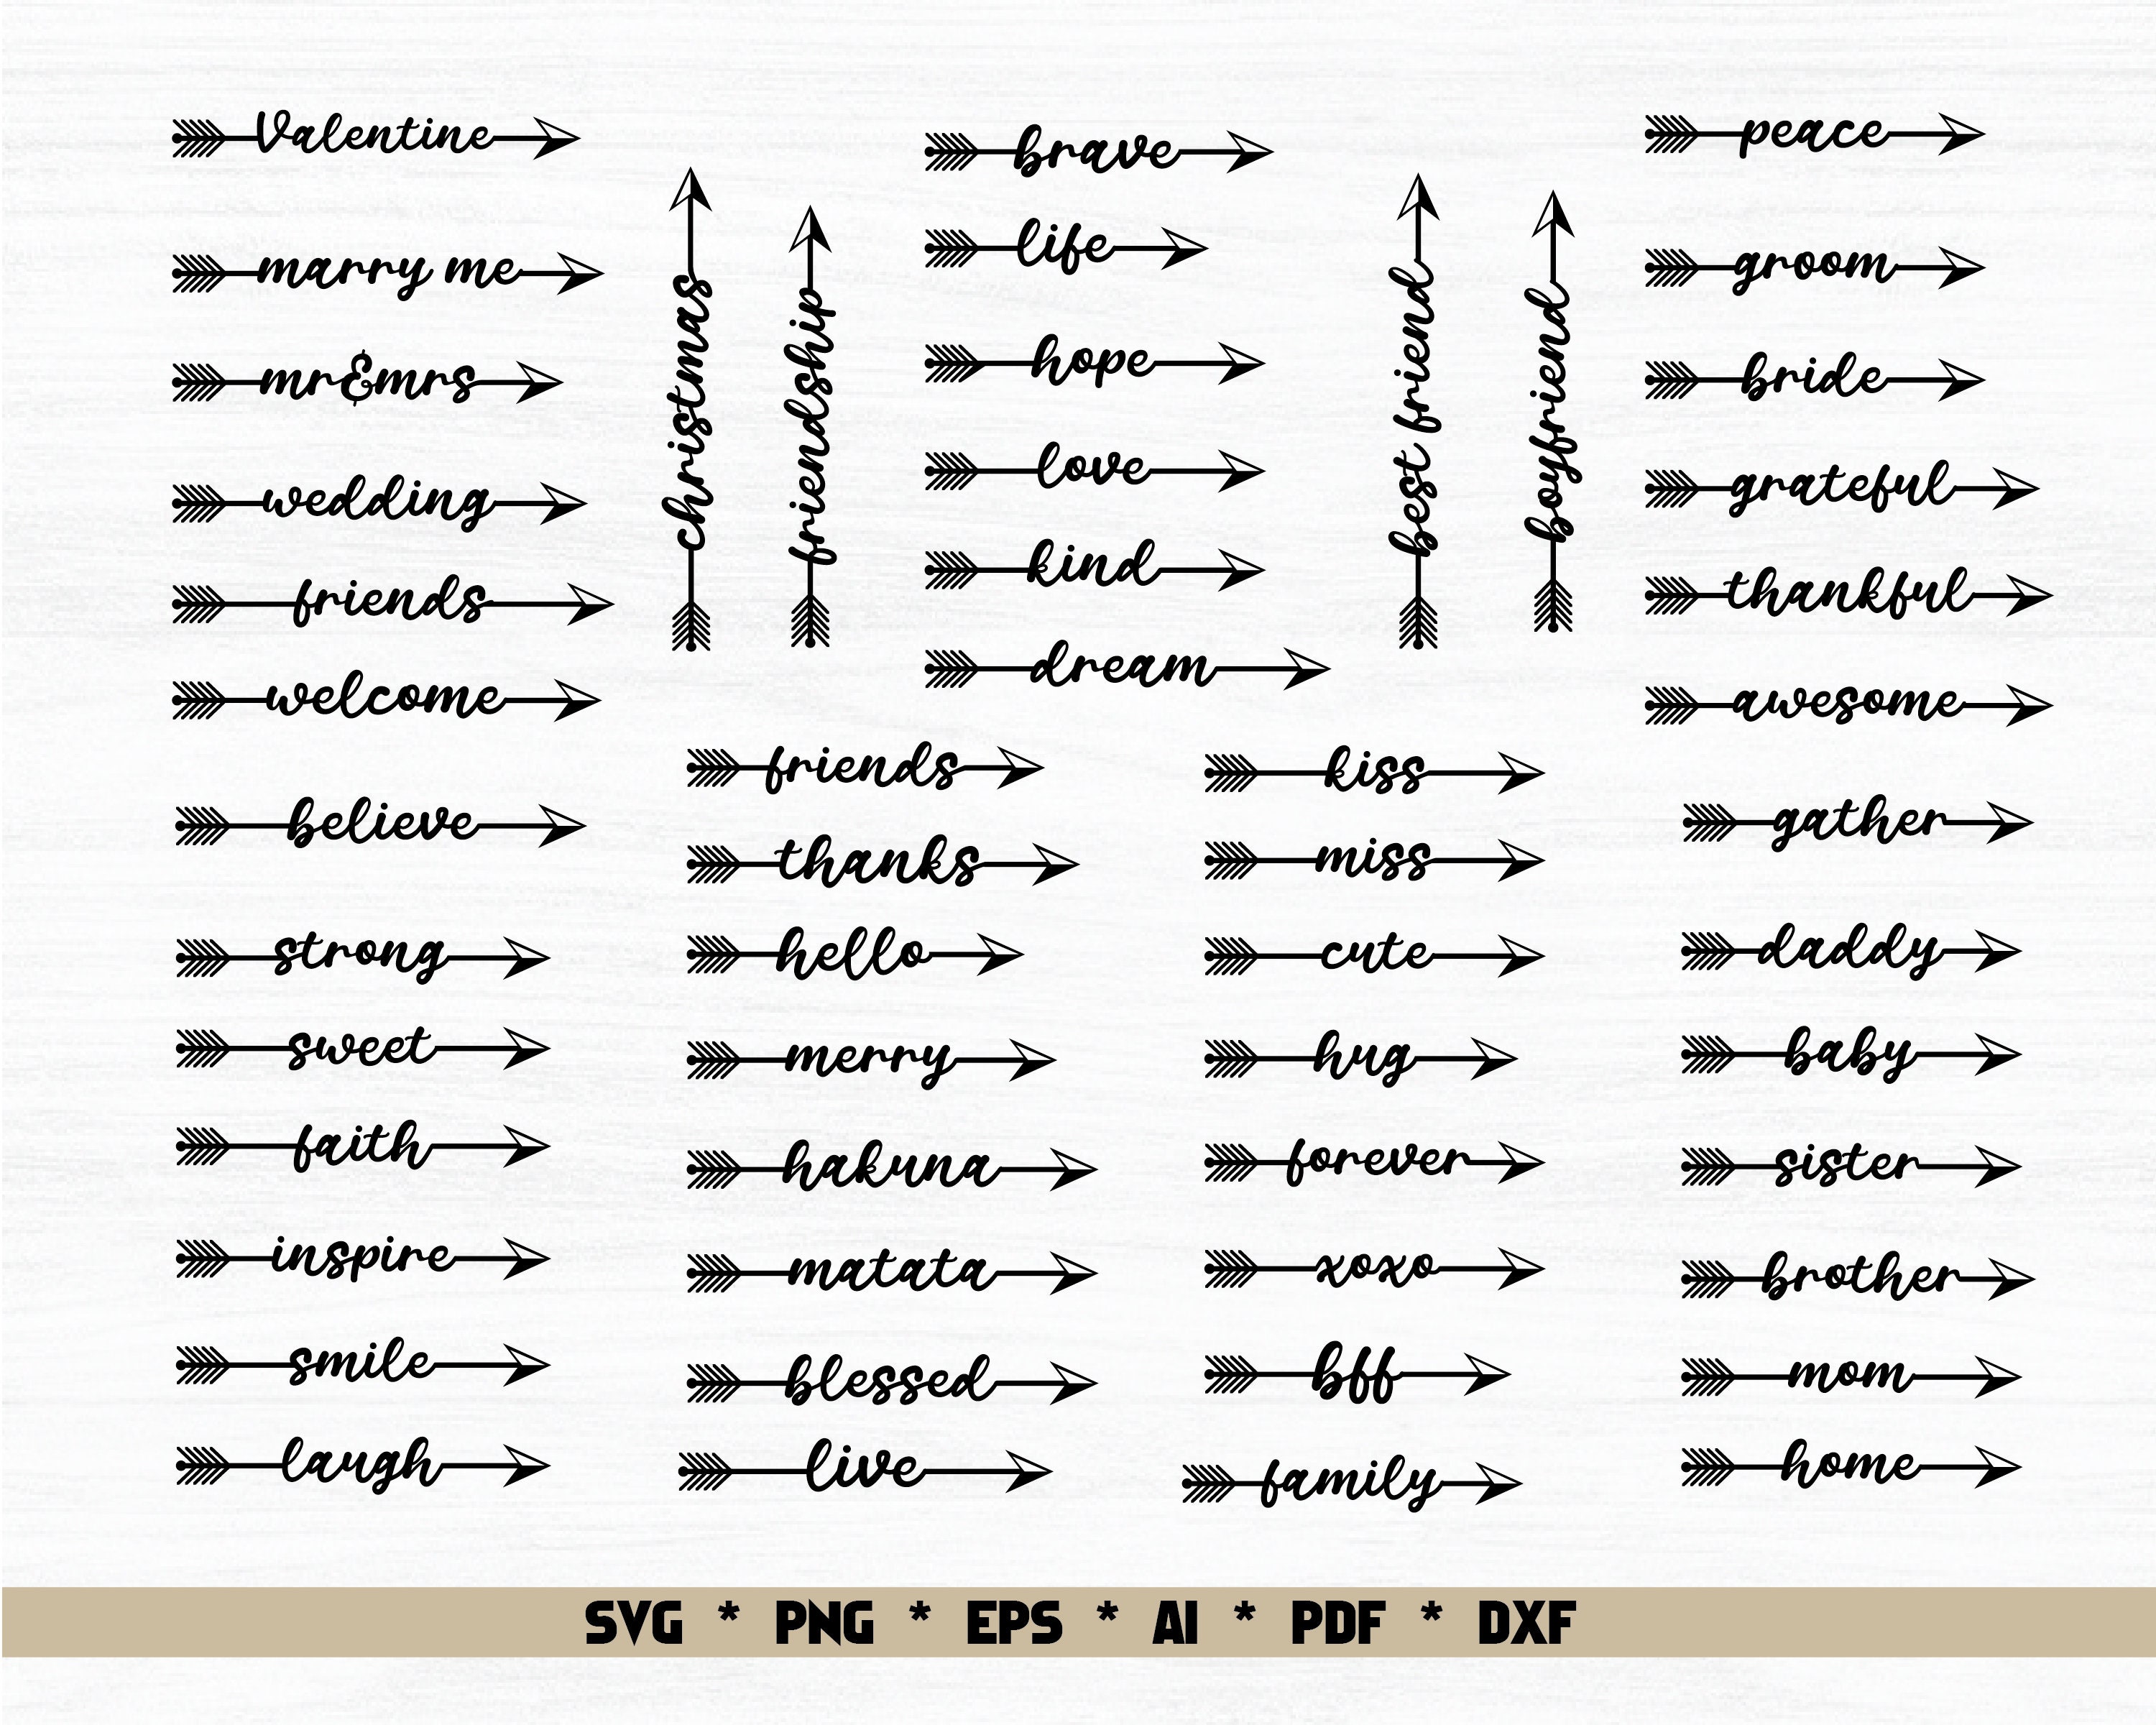 Valentine
marry me
mr&mrs
wedding
friends
welcome
believe
strong
sweet
faith
inspire
smile
laugh
christmas
friendship
brave
life
hope
love
kind
dream
best friend
boyfriend
friends
thanks
hello
merry
hakuna
matata
blessed
live
kiss
miss
cute
hug
forever
xoxo
bff
family
peace
groom
bride
grateful
thankful
awesome
gather
daddy
baby
sister
brother
mom
home
SVG * PNG * EPS * AI * PDF * DXF